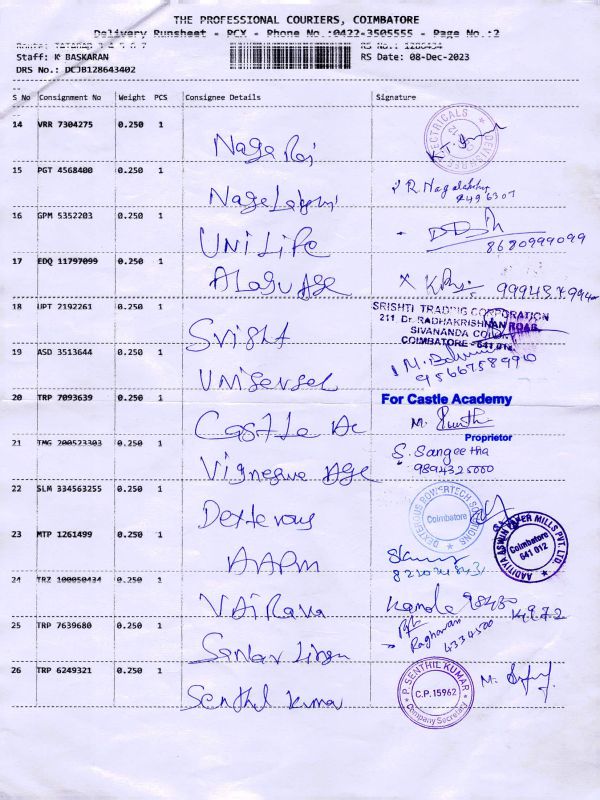 THE PROFESSIONAL COURIERS, COIMBATORE
Delivery Runsheet - PCX - Phone No.:0422-3505555 - Page No.:2
Staff: K BASKARAN RS Date: 08-Dec-2023
DRS No.: DCJB128643402
S No Consignment No Weight PCS Consignee Details Signature
14 VRR 7304275 0.250 1
Nage Raj
15 PGT 4568400 0.250 1
R. Nagalakshmi
16 GPM 5352203 0.250 1
UNiLiFe
8680999099
17 EDQ 11797099 0.250 1
ALAGU AGe
18 UPT 2192261 0.250 1
SRISHTI TRADING CORPORATION
211 Dr. RADHAKRISHNAN ROAD,
SIVANANDA COLONY
COIMBATORE - 641 012
Srisht
19 ASD 3513644 0.250 1
Universel
20 TRP 7093639 0.250 1
For Castle Academy
Castle Ac
Proprietor
21 TMG 200523303 0.250 1
S. Sangeetha
9894325000
Vigneswe AGe
22 SLM 334563255 0.250 1
DEXTEROUS POWERTECH SOLUTIONS
Coimbatore
Dexterous
23 MTP 1261499 0.250 1
AADITIYA ASWIN PAPER MILLS PVT. LTD.
Coimbatore
641 012
AAPM
24 TRZ 100050434 0.250 1
VAiRava
Kamala
25 TRP 7639680 0.250 1
Raghavan
26 TRP 6249321 0.250 1
P. SENTHIL KUMAR
C.P. 15962
Company Secretary
Senthil Kumar